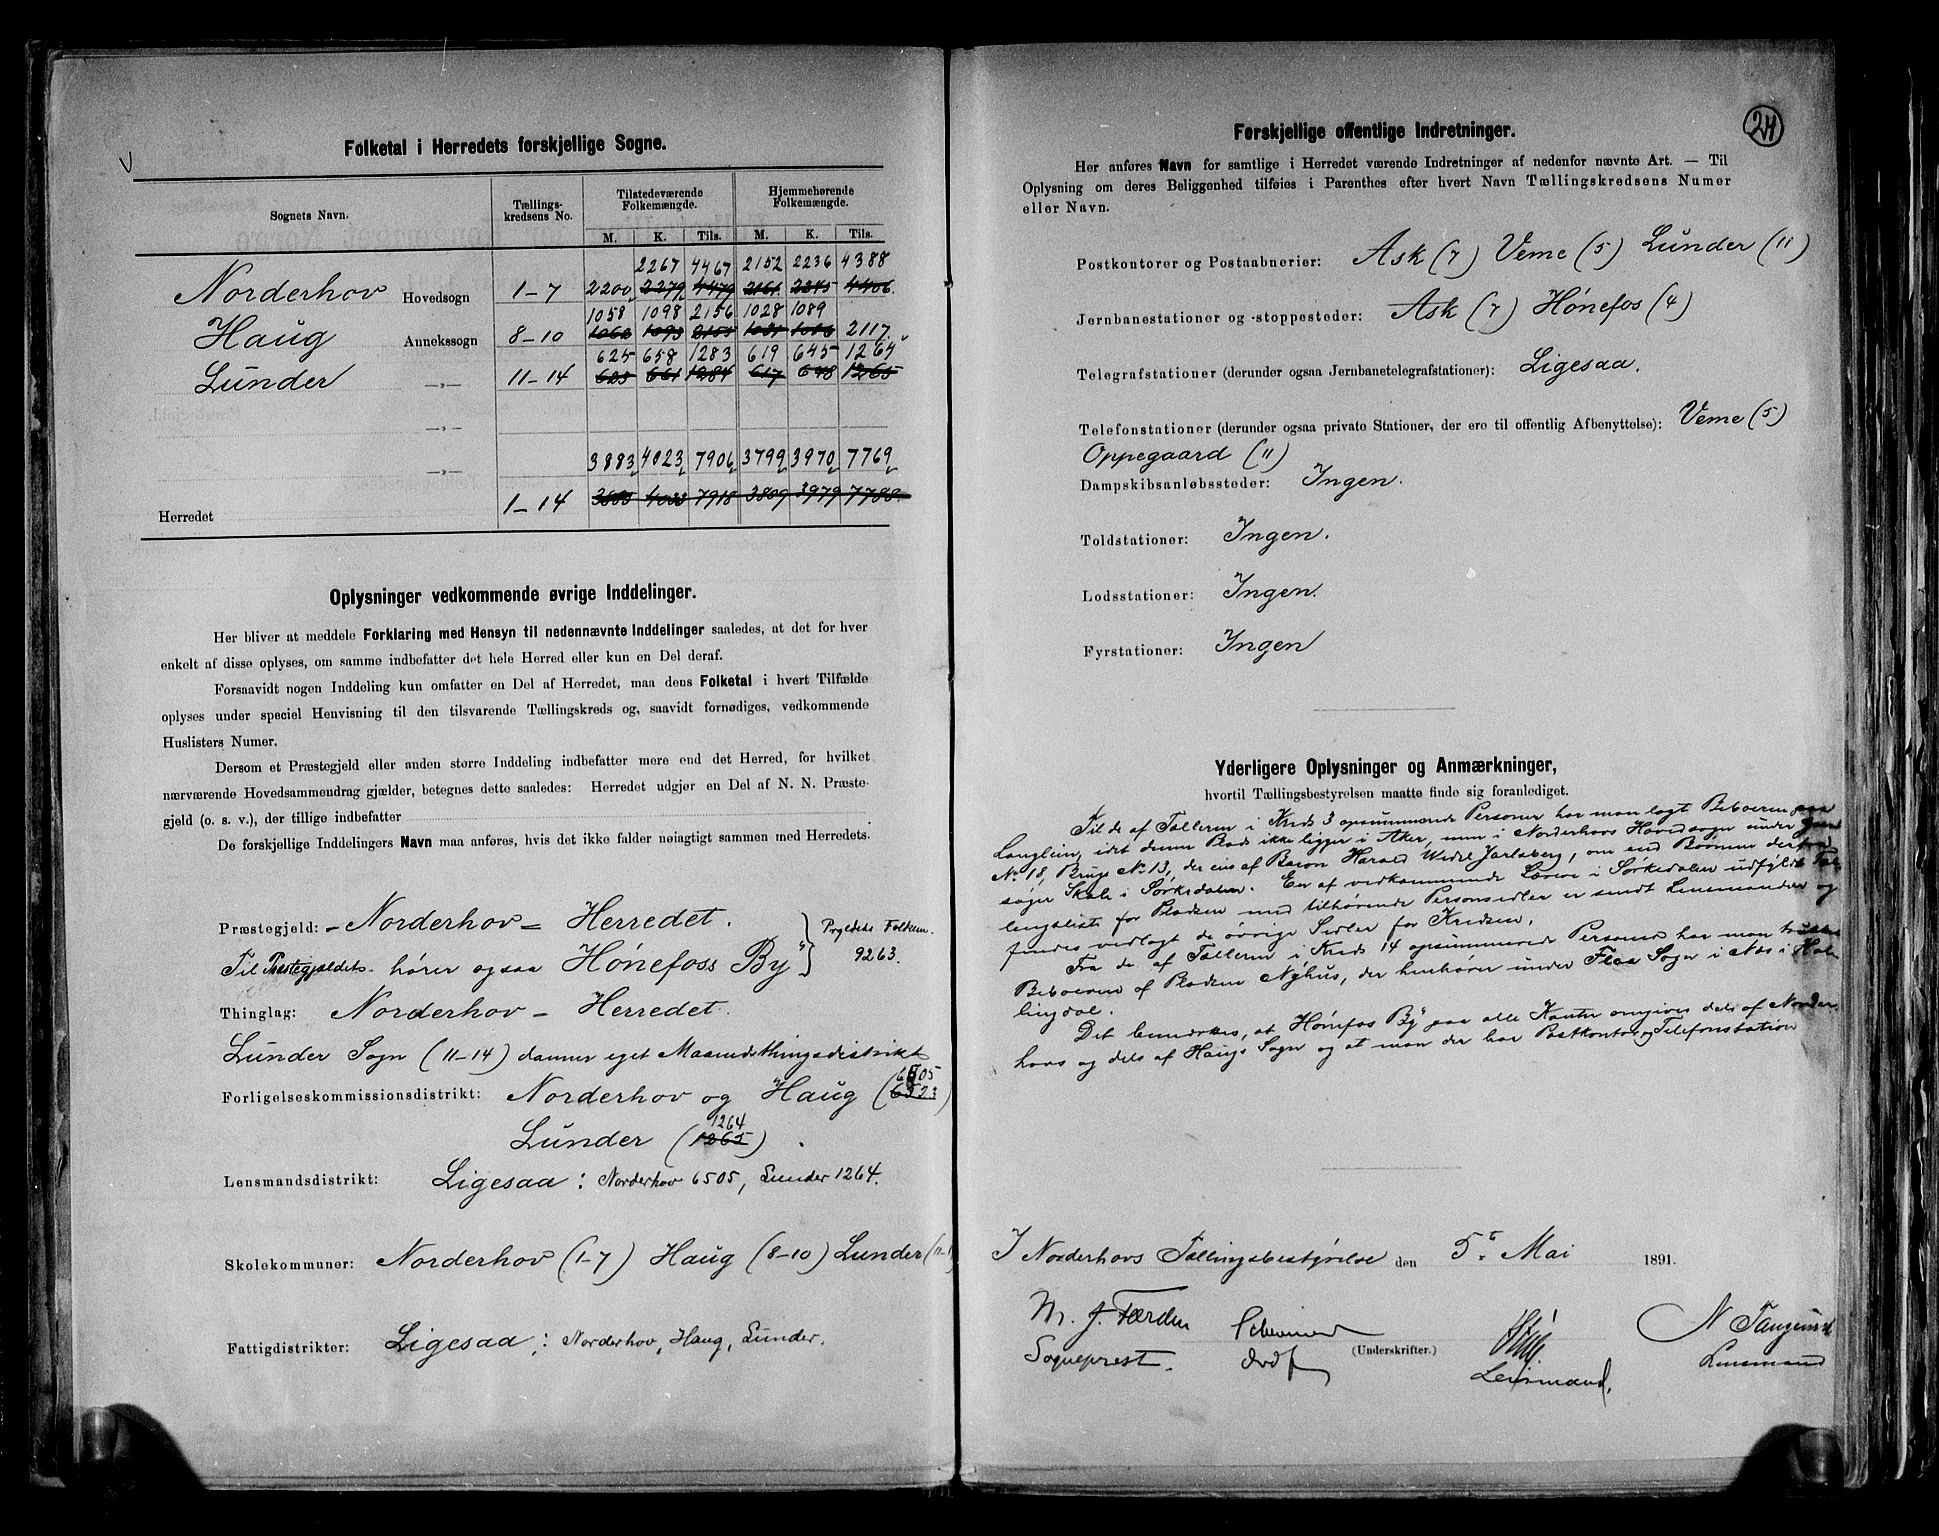 Folketal i Herredets forskjellige Sogne.
V
Sognets Navn. Tællings-kredsens No. Tilstedeværende Folkemængde. Hjemmehørende Folkemængde.
M. K. Tils. M. K. Tils.
2267 4467 2152 2236 4388
Norderhov Hovedsogn 1-7 2200 2279 4479 2161 2245 4406
1058 1098 2156 1028 1089
Haug Annekssogn 8-10 1062 1093 2155 1031 1086 2117
625 658 1283 619 645 1264
Lunder —„— 11-14 623 661 1284 617 648 1265
—„—
—„— 3883 4023 7906 3799 3970 7769
Herredet 1-14 4033 7918 3809 3979 7788
Oplysninger vedkommende øvrige Inddelinger.
Her bliver at meddele Forklaring med Hensyn til nedennævnte Inddelinger saaledes, at det for hver
enkelt af disse oplyses, om samme indbefatter det hele Herred eller kun en Del deraf.
Forsaavidt nogen Inddeling kun omfatter en Del af Herredet, maa dens Folketal i hvert Tilfælde
oplyses under speciel Henvisning til den tilsvarende Tællingskreds og, saavidt fornødiges, vedkommende
Huslisters Numer.
Dersom et Præstegjeld eller anden større Inddeling indbefatter mere end det Herred, for hvilket
nærværende Hovedsammendrag gjælder, betegnes dette saaledes: Herredet udgjør en Del af N. N. Præste-
gjeld (o. s. v.), der tillige indbefatter
De forskjellige Inddelingers Navn maa anføres, hvis det ikke falder nøiagtigt sammen med Herredets.
Præstegjeld: - Norderhov = Herredet. Prgjeldets Folkem.
Til Præstegjældet hører ogsaa Hønefoss By 9263.
Thinglag: Norderhov - Herredet.
Lunder Sogn (11-14) danner eget Maanedsthingsdistrikt
6505
Forligelseskommissionsdistrikt: Norderhov og Haug (6523)
1264
Lunder (1265).
Lensmandsdistrikt: Ligesaa: Norderhov 6505, Lunder 1264.
Skolekommuner: Norderhov (1-7) Haug (8-10) Lunder (11-1
Fattigdistrikter: Ligesaa: Norderhov, Haug, Lunder.
24
Forskjellige offentlige Indretninger.
Her anføres Navn for samtlige i Herredet værende Indretninger af nedenfor nævnte Art. — Til
Oplysning om deres Beliggenhed tilføies i Parenthes efter hvert Navn Tællingskredsens Numer
eller Navn.
Postkontorer og Postaabnerier: Ask (7) Veme (5) Lunder (11)
Jernbanestationer og -stoppesteder: Ask (7) Hønefos (4)
Telegrafstationer (derunder ogsaa Jernbanetelegrafstationer): Ligesaa.
Telefonstationer (derunder ogsaa private Stationer, der ere til offentlig Afbenyttelse): Veme (5)
Oppegaard (11)
Dampskibsanløbssteder: Ingen.
Toldstationer: Ingen.
Lodsstationer: Ingen.
Fyrstationer: Ingen
Yderligere Oplysninger og Anmærkninger,
hvortil Tællingsbestyrelsen maatte finde sig foranlediget.
Til de af Tælleren i Kreds 3 opsummerede Personer har man lagt Beboeren paa
Langlein, idet denne Plads ikke ligger i Aker, men i Norderhovs Hovedsogn under Gaard
No 18, Brugs No 13, der eies af Baron Harald Wedel Jarlsberg, om end Børnene derfra
søger Skole i Sørkedalen. En af vedkommende Lærer i Sørkedalen udfyldt Tæl-
lingsliste for Pladsen med tilhørende Personsedler er sendt Lensmanden og
findes vedlagt de øvrige Sedler for Kredsen.
Fra de af Tælleren i Kreds 14 opsummerede Personer har man trukket
Beboerne af Pladsen Nyhus, der henhører under Flaa Sogn i Næs i Hal-
lingdal.
Det bemærkes, at Hønefos By paa alle Kanter omgives dels af Norder-
hovs og dels af Haugs Sogn og at man der har Postkontor og Telefonstation
I Norderhovs Tællingsbestyrelse den 5te Mai 1891.
M. J. Færden N Tangerud
Sogneprest. Ordf (Underskrifter.) Lensmand. Lensmand